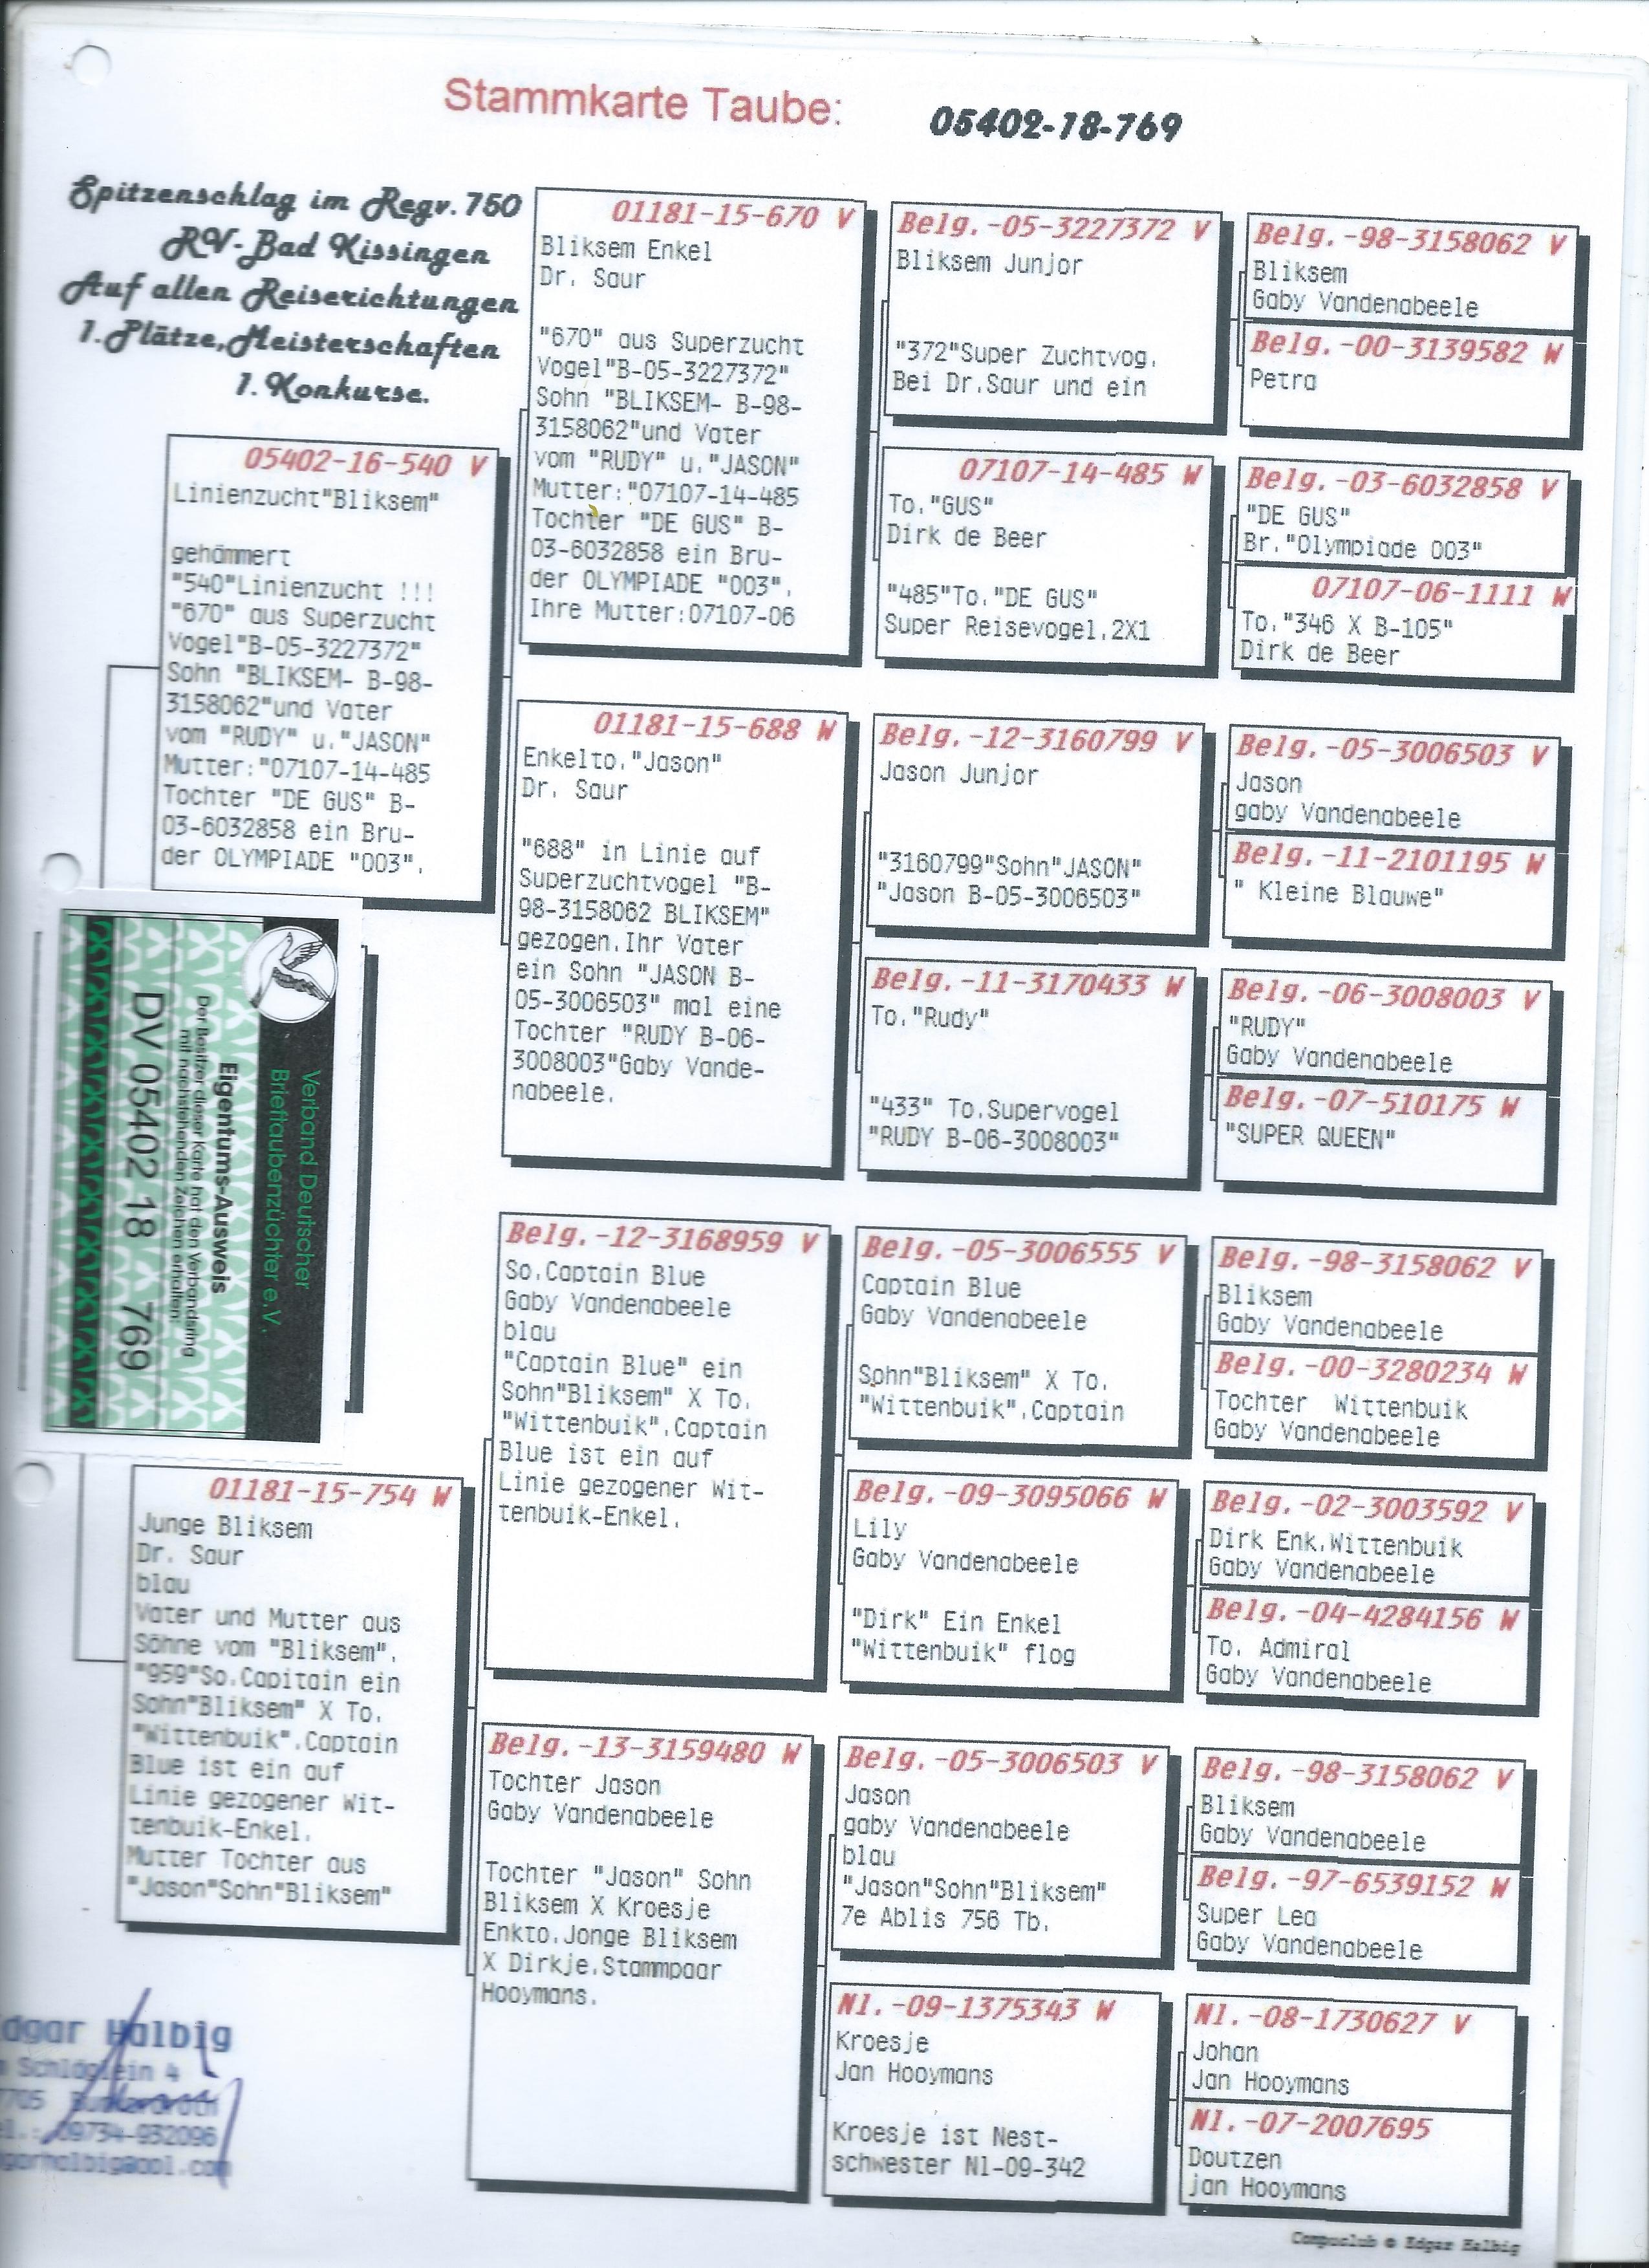 Stammkarte Taube:
05402-18-769
Spitzenschlag im Regv. 750
RV-Bad Kissingen
Auf allen Reiserichtungen
1.Plätze,Meisterschaften
1. Konkurse.
05402-16-540 V
Linienzucht"Bliksem"
gehämmert
"540"Linienzucht !!!
"670" aus Superzucht
Vogel"B-05-3227372"
Sohn "BLIKSEM- B-98-
3158062"und Vater
vom "RUDY" u."JASON"
Mutter:"07107-14-485
Tochter "DE GUS" B-
03-6032858 ein Bru-
der OLYMPIADE "003".
Verband Deutscher
Brieftaubenzüchter e.V.
Eigentums-Ausweis
Der Besitzer dieser Karte hat den Verbandsring
mit nachstehenden Zeichen erhalten:
DV 05402 18 769
01181-15-754 W
Junge Bliksem
Dr. Saur
blau
Vater und Mutter aus
Söhne vom "Bliksem".
"959"So.Capitain ein
Sohn"Bliksem" X To.
"Wittenbuik".Captain
Blue ist ein auf
Linie gezogener Wit-
tenbuik-Enkel.
Mutter Tochter aus
"Jason"Sohn"Bliksem"
dgar Halbig
Schläglein 4
7705
el.: 09734-932096
garhalbig@aol.com
01181-15-670 V
Bliksem Enkel
Dr. Saur
"670" aus Superzucht
Vogel"B-05-3227372"
Sohn "BLIKSEM- B-98-
3158062"und Vater
vom "RUDY" u."JASON"
Mutter:"07107-14-485
Tochter "DE GUS" B-
03-6032858 ein Bru-
der OLYMPIADE "003".
Ihre Mutter:07107-06
01181-15-688 W
Enkelto."Jason"
Dr. Saur
"688" in Linie auf
Superzuchtvogel "B-
98-3158062 BLIKSEM"
gezogen.Ihr Vater
ein Sohn "JASON B-
05-3006503" mal eine
Tochter "RUDY B-06-
3008003"Gaby Vande-
nabeele.
Belg.-12-3168959 V
So.Captain Blue
Gaby Vandenabeele
blau
"Captain Blue" ein
Sohn"Bliksem" X To.
"Wittenbuik".Captain
Blue ist ein auf
Linie gezogener Wit-
tenbuik-Enkel.
Belg.-13-3159480 W
Tochter Jason
Gaby Vandenabeele
Tochter "Jason" Sohn
Bliksem X Kroesje
Enkto.Jonge Bliksem
X Dirkje.Stammpaar
Hooymans.
Belg.-05-3227372 V
Bliksem Junjor
"372"Super Zuchtvog.
Bei Dr.Saur und ein
07107-14-485 W
To."GUS"
Dirk de Beer
"485"To."DE GUS"
Super Reisevogel.2X1
Belg.-12-3160799 V
Jason Junjor
"3160799"Sohn"JASON"
"Jason B-05-3006503"
Belg.-11-3170433 W
To."Rudy"
"433" To.Supervogel
"RUDY B-06-3008003"
Belg.-05-3006555 V
Captain Blue
Gaby Vandenabeele
Sohn"Bliksem" X To.
"Wittenbuik".Captain
Belg.-09-3095066 W
Lily
Gaby Vandenabeele
"Dirk" Ein Enkel
"Wittenbuik" flog
Belg.-05-3006503 V
Jason
gaby Vandenabeele
blau
"Jason"Sohn"Bliksem"
7e Ablis 756 Tb.
Nl.-09-1375343 W
Kroesje
Jan Hooymans
Kroesje ist Nest-
schwester Nl-09-342
Belg.-98-3158062 V
Bliksem
Gaby Vandenabeele
Belg.-00-3139582 W
Petra
Belg.-03-6032858 V
"DE GUS"
Br."Olympiade 003"
07107-06-1111 W
To."346 X B-105"
Dirk de Beer
Belg.-05-3006503 V
Jason
gaby Vandenabeele
Belg.-11-2101195 W
" Kleine Blauwe"
Belg.-06-3008003 V
"RUDY"
Gaby Vandenabeele
Belg.-07-510175 W
"SUPER QUEEN"
Belg.-98-3158062 V
Bliksem
Gaby Vandenabeele
Belg.-00-3280234 W
Tochter Wittenbuik
Gaby Vandenabeele
Belg.-02-3003592 V
Dirk Enk.Wittenbuik
Gaby Vandenabeele
Belg.-04-4284156 W
To. Admiral
Gaby Vandenabeele
Belg.-98-3158062 V
Bliksem
Gaby Vandenabeele
Belg.-97-6539152 W
Super Lea
Gaby Vandenabeele
Nl.-08-1730627 V
Johan
Jan Hooymans
Nl.-07-2007695
Doutzen
jan Hooymans
Compuclub © Edgar Halbig